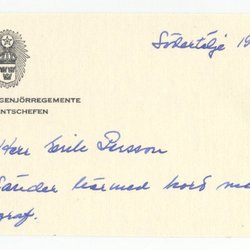 Södertälje 19
GENJÖRREGEMENTE
NTSCHEFEN
Herr Erik Persson
Sänder härmed kort me
graf.